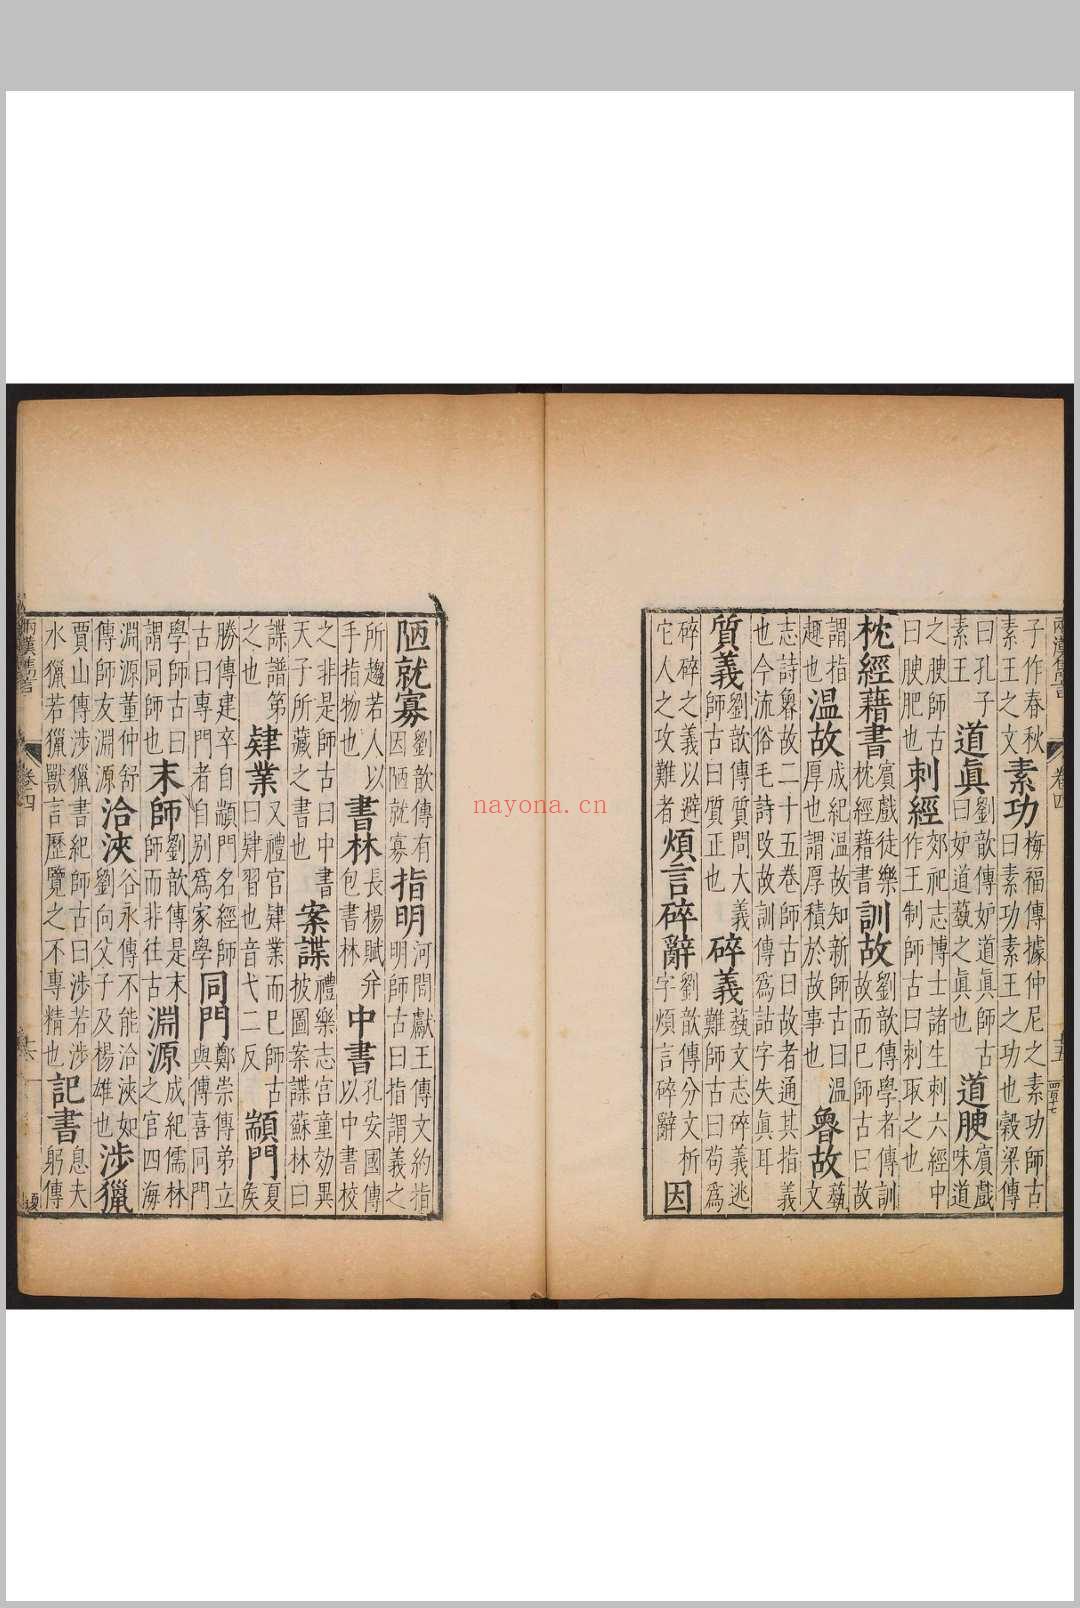 兩漢雋言 卷四 十五
子作春秋素王之文素功梅福傳據仲尼之素功師古曰素功素王之功也穀梁傳
曰孔子素王道眞劉歆傳妒道眞師古曰妒道蓺之眞也道腴賓戲味道
之腴師古曰腴肥也刺經郊祀志博士諸生刺六經中作王制師古曰刺取之也
枕經藉書賓戲徒樂枕經藉書訓故劉歆傳學者傳訓故而巳師古曰故
謂指趣也溫故成紀溫故知新師古曰溫厚也謂厚積於故事也魯故蓺文
志詩魯故二十五卷師古曰故者通其指義也今流俗毛詩攺故訓傳爲詁字失眞耳
質義劉歆傳質問大義師古曰質正也碎義蓺文志碎義逃難師古曰苟爲
碎碎之義以避它人之攻難者煩言碎辭劉歆傳分文析字煩言碎辭因
陋就寡劉歆傳有因陋就寡指明河閒獻王傳文約指明師古曰指謂義之
所趨若人以手指物也書林長楊賦幷包書林中書孔安國傳以中書校
之非是師古曰中書天子所藏之書也案諜禮樂志宮童効異披圖案諜蘇林曰
諜譜第之也肄業又禮官肄業而巳師古曰肄習也音弋二反顓門夏矦
勝傳建卒自顓門名經師古曰專門者自别爲家學同門鄭崇傳弟立與傳喜同門
學師古曰謂同師也末師劉歆傳是末師而非往古淵源成紀儒林之官四海
淵源董仲舒傳師友淵源洽浹谷永傳不能洽浹如劉向父子及楊雄也涉獵
賈山傳涉獵書紀師古曰涉若涉水獵若獵獸言歷覽之不專精也記書息夫躬傳
兩漢雋言 卷四 十六
nayona.cn